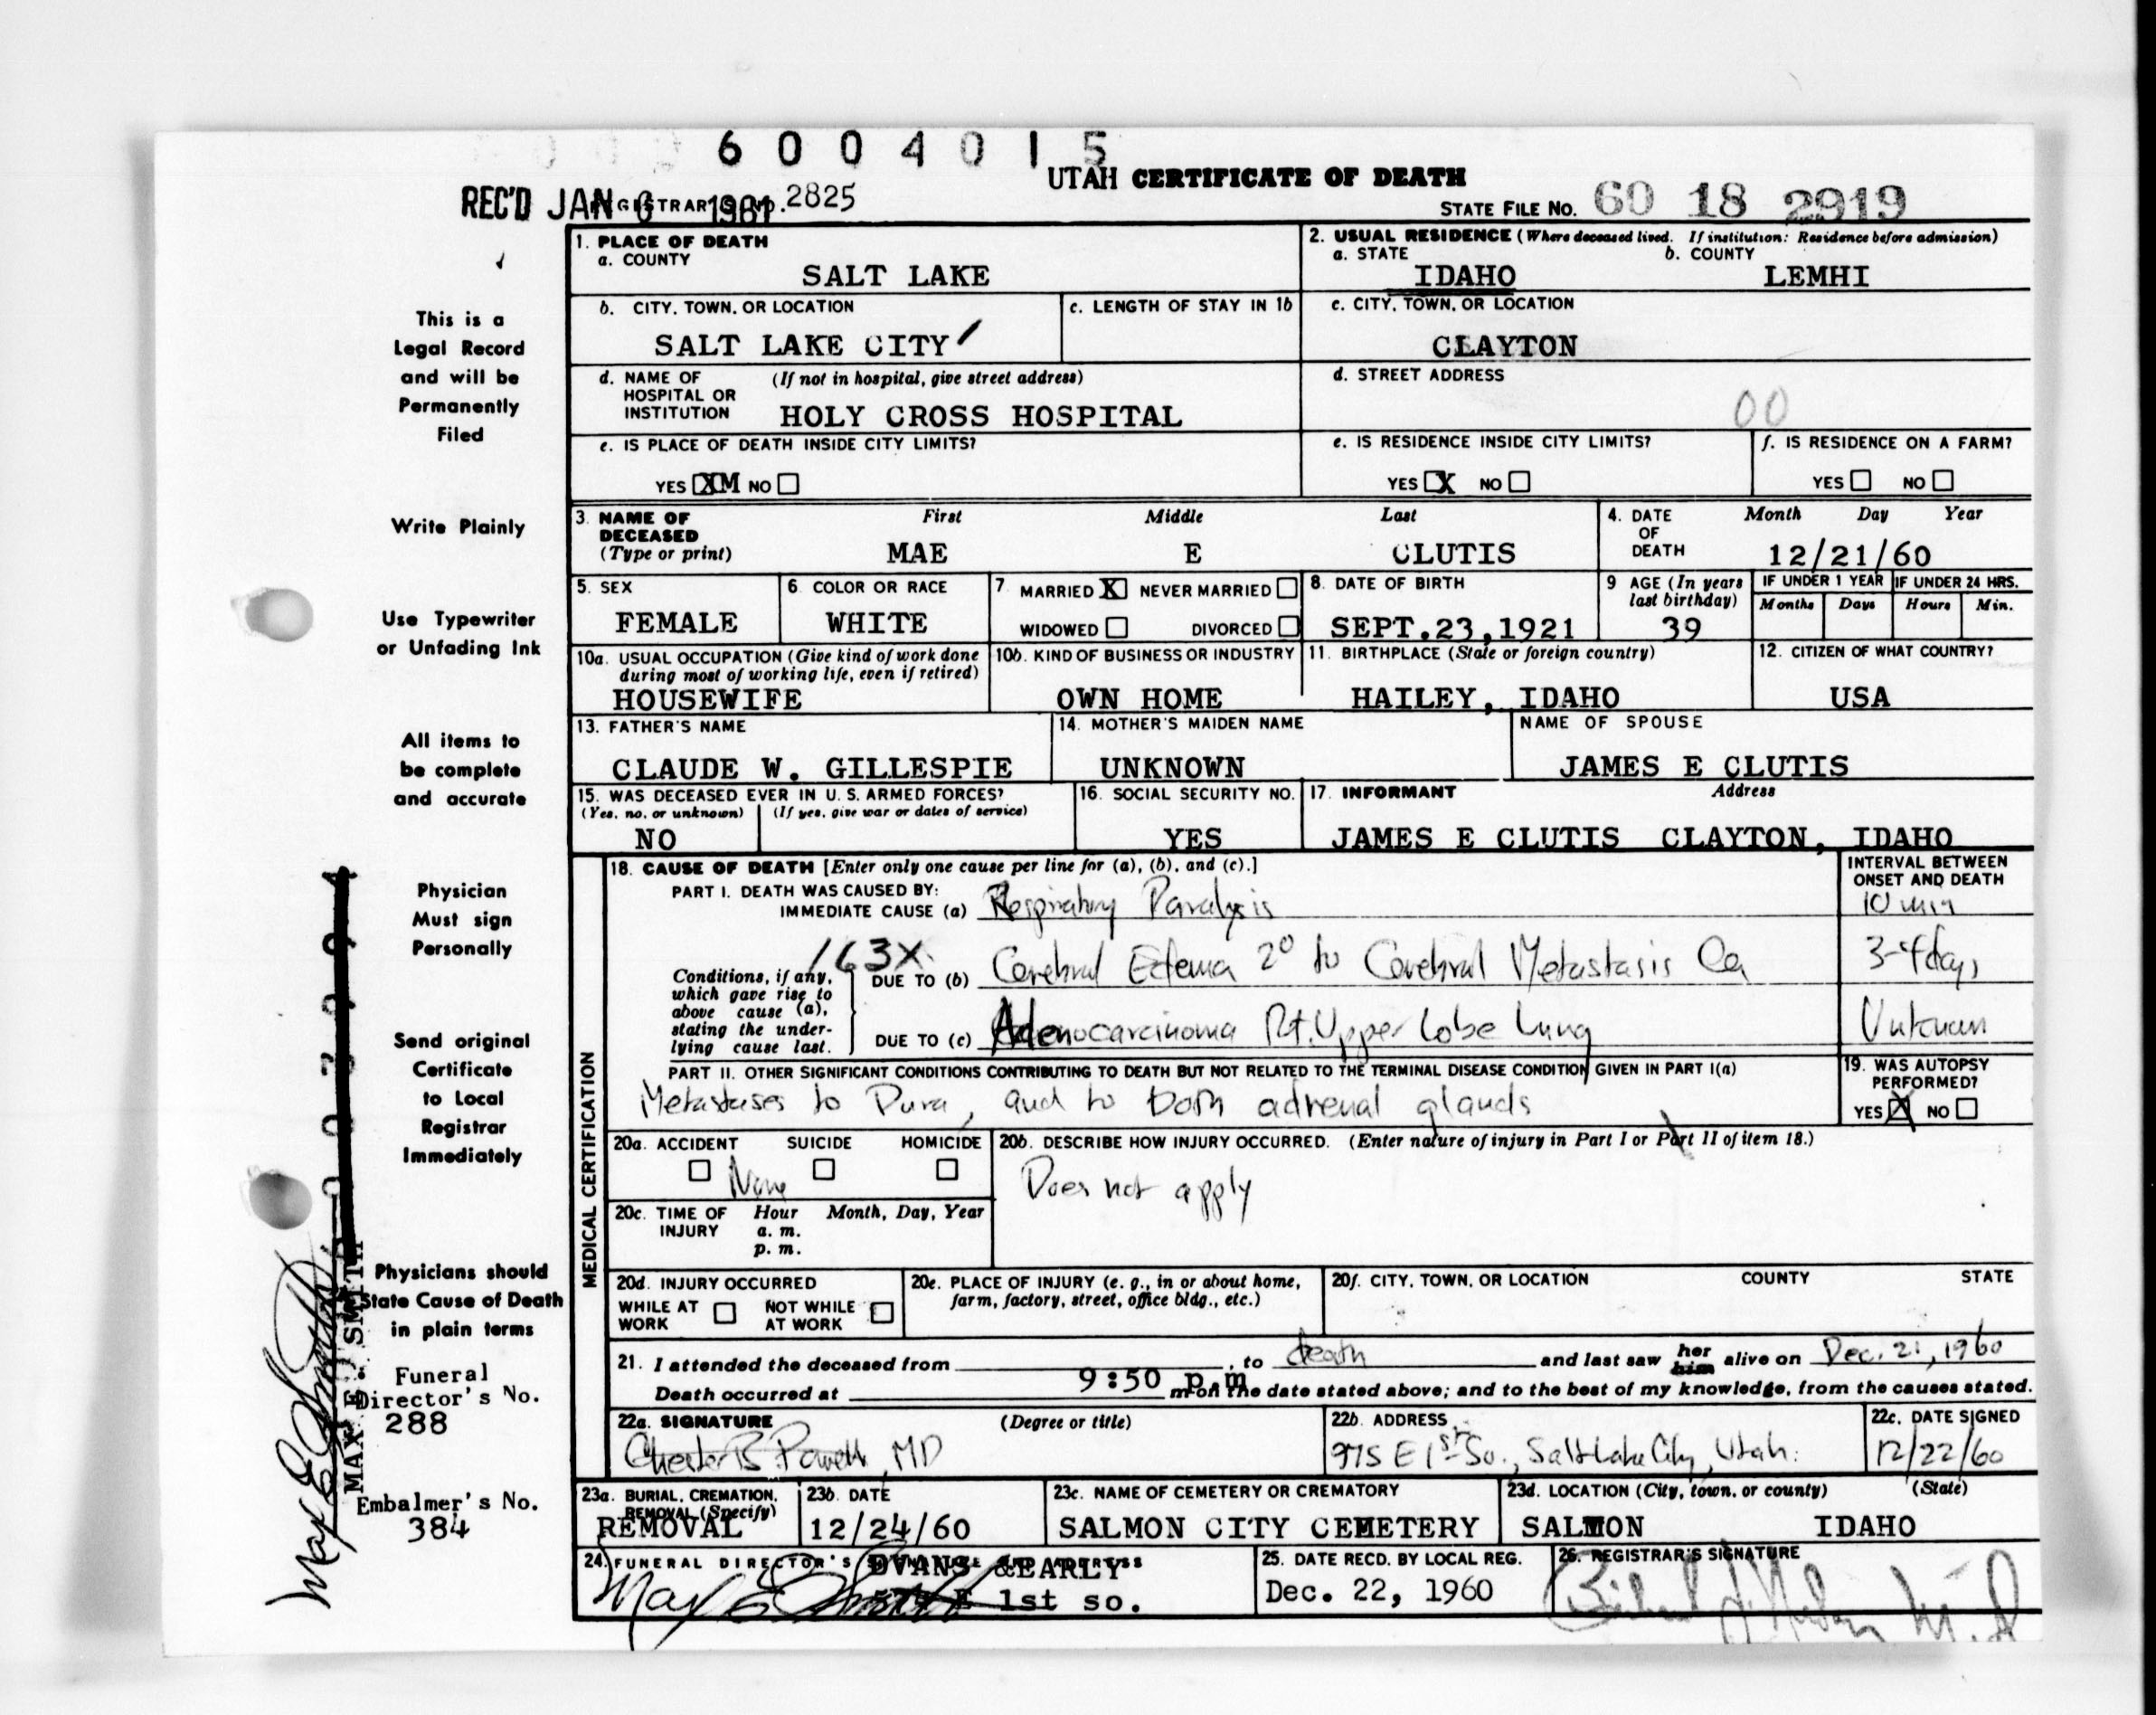 6004015
UTAH CERTIFICATE OF DEATH
REC'D JAN 6 1961 REGISTRAR'S NO. 2825
STATE FILE NO. 60 18 2919
This is a
Legal Record
and will be
Permanently
Filed
Write Plainly
Use Typewriter
or Unfading Ink
All items to
be complete
and accurate
Physician
Must sign
Personally
Send original
Certificate
to Local
Registrar
Immediately
Physicians should
State Cause of Death
in plain terms
Funeral
Director's No.
288
Embalmer's No.
384
Max E Smith
MAX E. SMITH
1. PLACE OF DEATH
a. COUNTY
SALT LAKE
2. USUAL RESIDENCE (Where deceased lived. If institution: Residence before admission)
a. STATE b. COUNTY
IDAHO LEMHI
b. CITY, TOWN, OR LOCATION
SALT LAKE CITY
c. LENGTH OF STAY IN 1b
c. CITY, TOWN, OR LOCATION
CLAYTON
d. NAME OF HOSPITAL OR INSTITUTION (If not in hospital, give street address)
HOLY CROSS HOSPITAL
d. STREET ADDRESS
00
e. IS PLACE OF DEATH INSIDE CITY LIMITS?
YES XM NO
e. IS RESIDENCE INSIDE CITY LIMITS?
YES X NO
f. IS RESIDENCE ON A FARM?
YES NO
3. NAME OF DECEASED (Type or print)
First Middle Last
MAE E CLUTIS
4. DATE OF DEATH Month Day Year
12/21/60
5. SEX
FEMALE
6 COLOR OR RACE
WHITE
7 MARRIED X NEVER MARRIED
WIDOWED DIVORCED
8. DATE OF BIRTH
SEPT.23,1921
9 AGE (In years last birthday)
39
IF UNDER 1 YEAR IF UNDER 24 HRS.
Months Days Hours Min.
10a. USUAL OCCUPATION (Give kind of work done during most of working life, even if retired)
HOUSEWIFE
10b. KIND OF BUSINESS OR INDUSTRY
OWN HOME
11. BIRTHPLACE (State or foreign country)
HAILEY, IDAHO
12. CITIZEN OF WHAT COUNTRY?
USA
13. FATHER'S NAME
CLAUDE W. GILLESPIE
14. MOTHER'S MAIDEN NAME
UNKNOWN
NAME OF SPOUSE
JAMES E CLUTIS
15. WAS DECEASED EVER IN U. S. ARMED FORCES?
(Yes, no, or unknown) (If yes, give war or dates of service)
NO
16. SOCIAL SECURITY NO.
YES
17. INFORMANT Address
JAMES E CLUTIS CLAYTON, IDAHO
MEDICAL CERTIFICATION
18. CAUSE OF DEATH [Enter only one cause per line for (a), (b), and (c).]
INTERVAL BETWEEN ONSET AND DEATH
PART I. DEATH WAS CAUSED BY:
IMMEDIATE CAUSE (a) Respiratory Paralysis 10 min
163X
Conditions, if any, which gave rise to above cause (a), stating the underlying cause last.
DUE TO (b) Cerebral Edema 2° to Cerebral Metastasis Ca 3-4 days
DUE TO (c) Adenocarcinoma Rt. Upper Lobe Lung Unknown
PART II. OTHER SIGNIFICANT CONDITIONS CONTRIBUTING TO DEATH BUT NOT RELATED TO THE TERMINAL DISEASE CONDITION GIVEN IN PART I(a)
Metastases to Dura, and to both adrenal glands
19. WAS AUTOPSY PERFORMED?
YES X NO
20a. ACCIDENT SUICIDE HOMICIDE
None
20b. DESCRIBE HOW INJURY OCCURRED. (Enter nature of injury in Part I or Part II of item 18.)
Does not apply
20c. TIME OF INJURY Hour Month, Day, Year
a. m.
p. m.
20d. INJURY OCCURRED
WHILE AT WORK NOT WHILE AT WORK
20e. PLACE OF INJURY (e. g., in or about home, farm, factory, street, office bldg., etc.)
20f. CITY, TOWN, OR LOCATION COUNTY STATE
21. I attended the deceased from , to death and last saw her him alive on Dec. 21, 1960
Death occurred at 9:50 p.m m on the date stated above; and to the best of my knowledge, from the causes stated.
22a. SIGNATURE (Degree or title)
Chester B Powell, MD
22b. ADDRESS
975 E 1st So., Salt Lake City, Utah.
22c. DATE SIGNED
12/22/60
23a. BURIAL, CREMATION, REMOVAL (Specify)
REMOVAL
23b. DATE
12/24/60
23c. NAME OF CEMETERY OR CREMATORY
SALMON CITY CEMETERY
23d. LOCATION (City, town, or county) (State)
SALMON IDAHO
24. FUNERAL DIRECTOR'S SIGNATURE AND ADDRESS
EVANS & EARLY
Max E Smith
E 1st so.
25. DATE RECD. BY LOCAL REG.
Dec. 22, 1960
26. REGISTRAR'S SIGNATURE